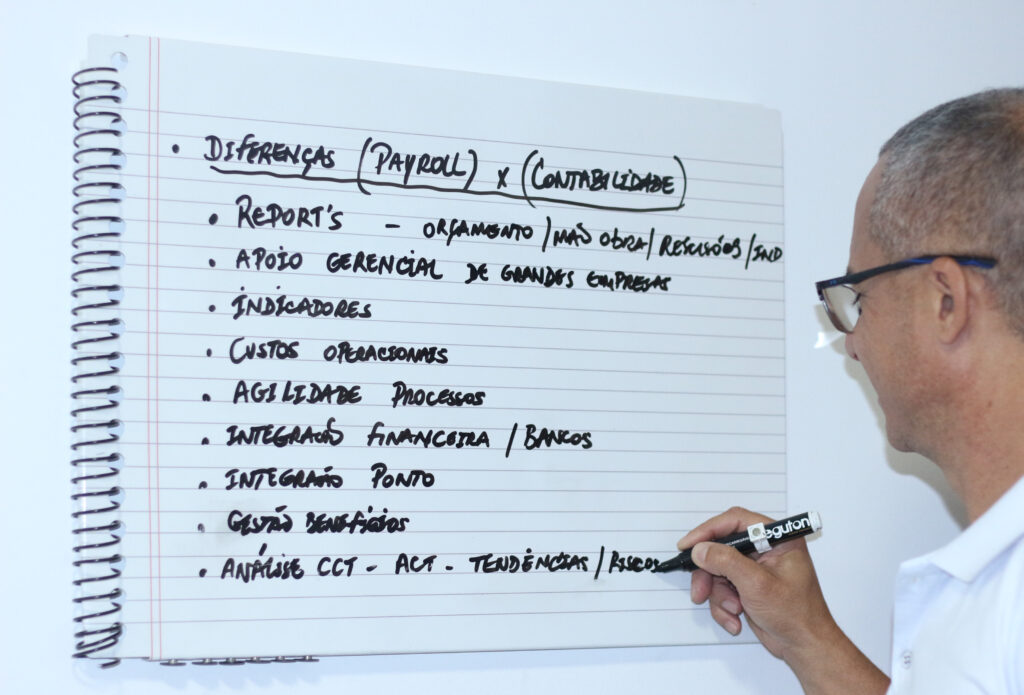 • DIFERENÇAS (PAYROLL) x (CONTABILIDADE)
• REPORT'S - ORÇAMENTO / MÃO OBRA / RESCISÕES / IND
• APOIO GERENCIAL DE GRANDES EMPRESAS
• INDICADORES
• CUSTOS OPERACIONAIS
• AGILIDADE PROCESSOS
• INTEGRAÇÃO FINANCEIRA / BANCOS
• INTEGRAÇÃO PONTO
• GESTÃO BENEFÍCIOS
• ANÁLISE CCT - ACT - TENDÊNCIAS / RISCOS